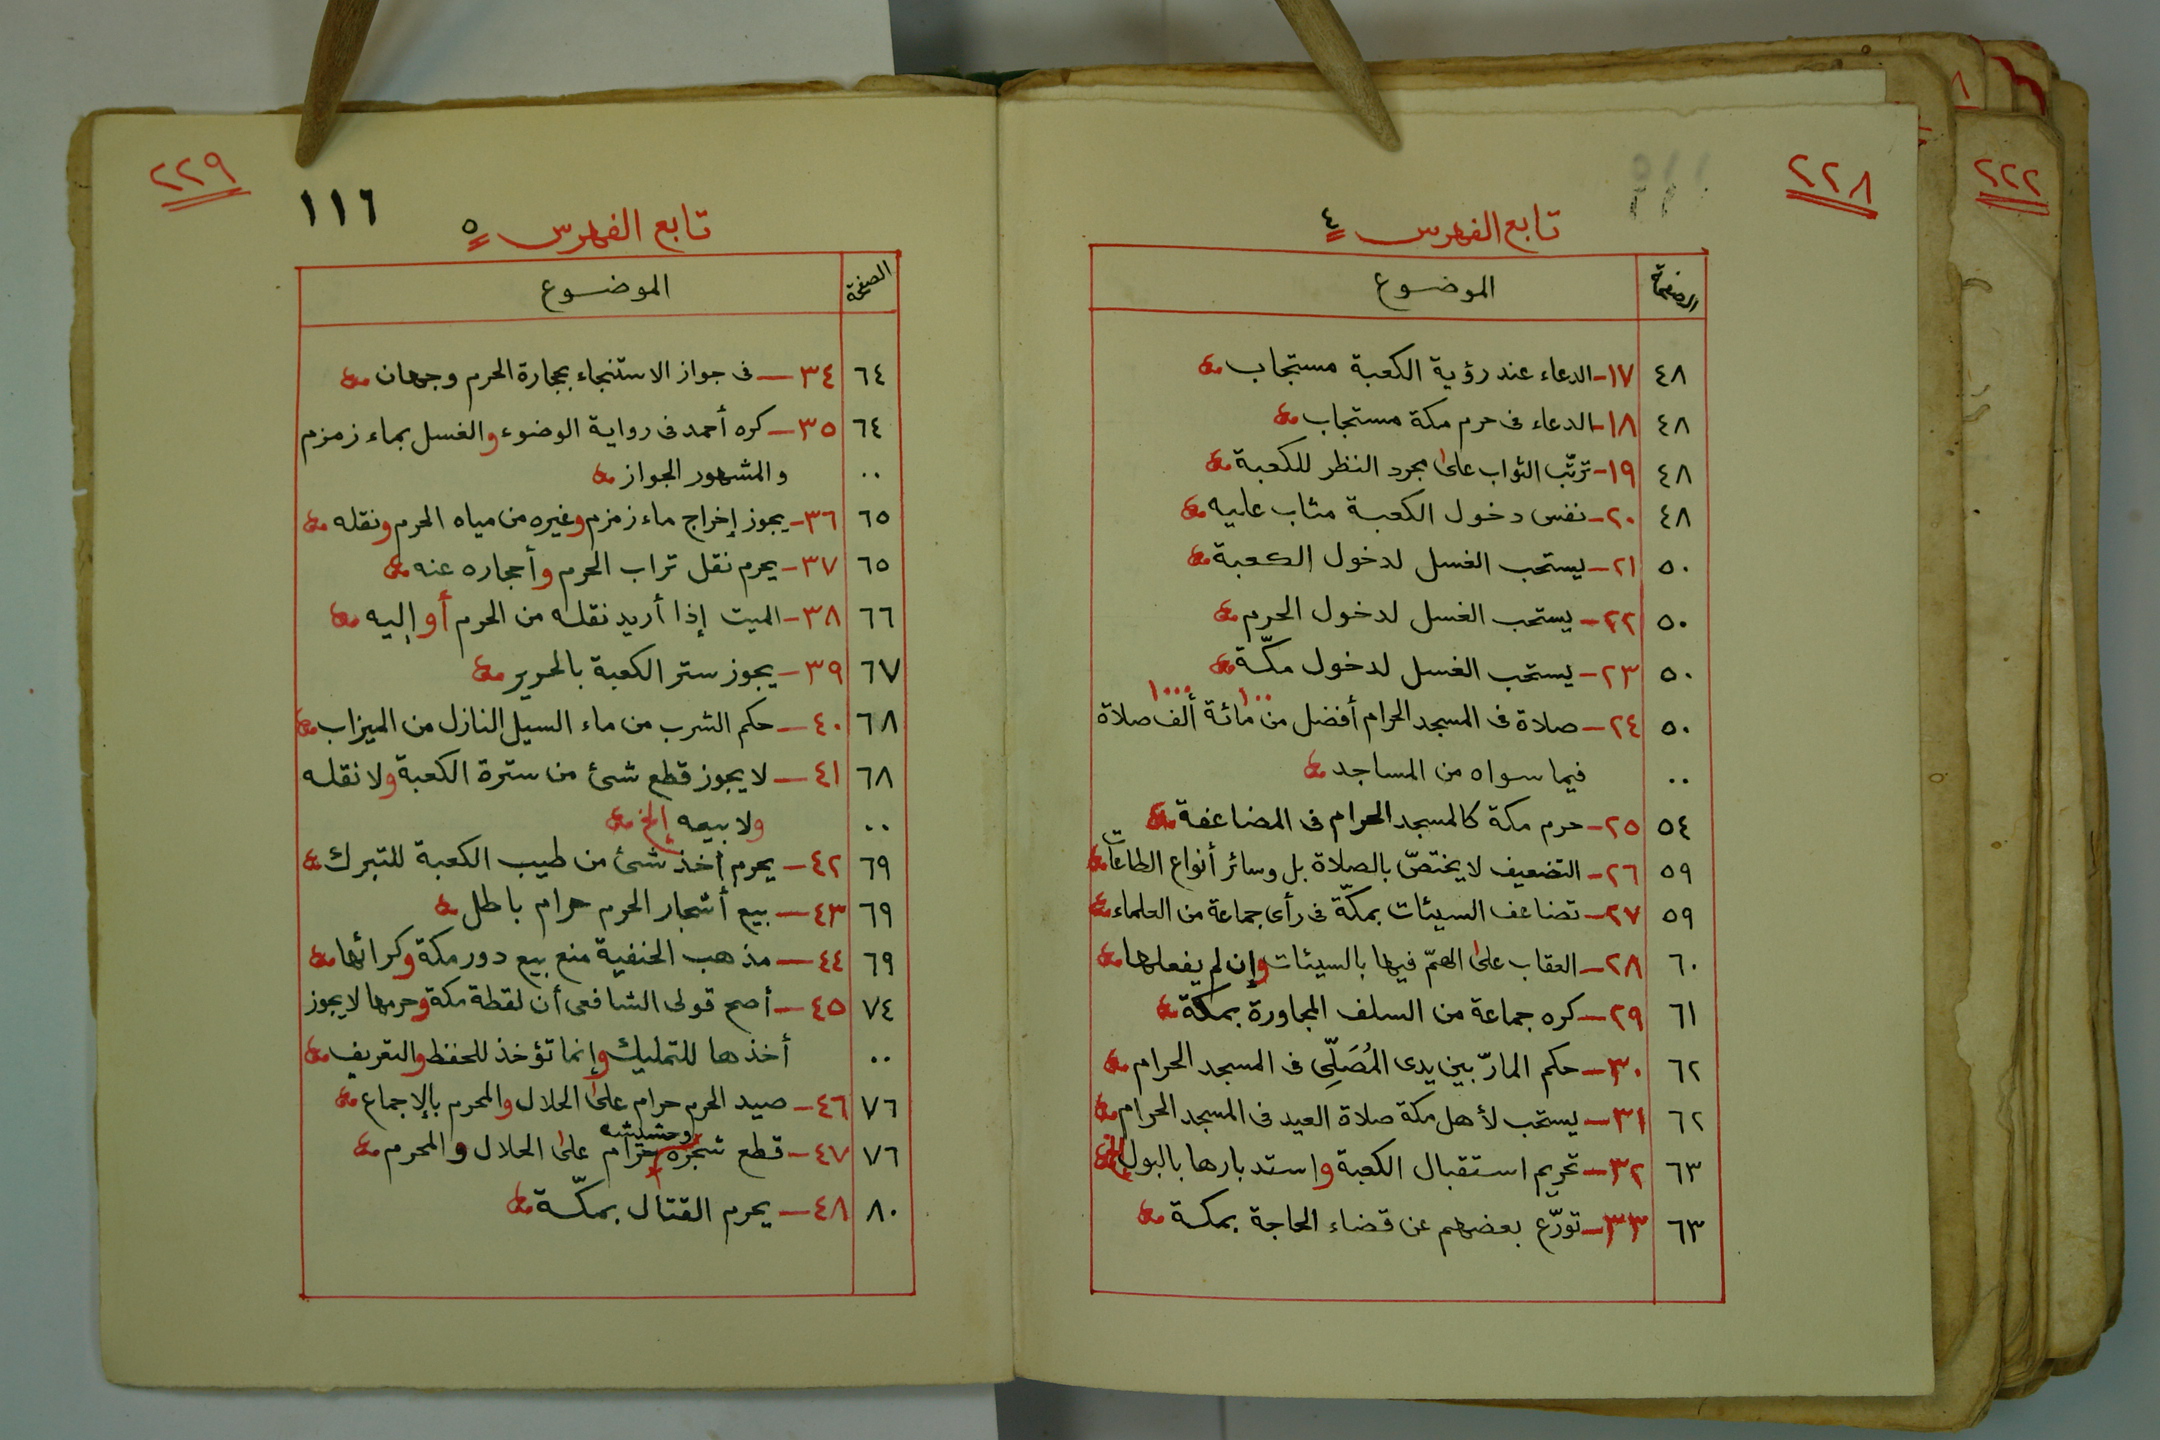 ٢٢٨
تابع الفهرس ٤
الصفحة الموضوع
٤٨ ١٧- الدعاء عند رؤية الكعبة مستجاب
٤٨ ١٨- الدعاء فى حرم مكة مستجاب
٤٨ ١٩- ترتّب الثواب على مجرد النظر للكعبة
٤٨ ٢٠- نفس دخول الكعبة مثاب عليه
٥٠ ٢١- يستحب الغسل لدخول الكعبة
٥٠ ٢٢- يستحب الغسل لدخول الحرم
٥٠ ٢٣- يستحب الغسل لدخول مكّة
١٠٠ ١٠٠٠
٥٠ ٢٤- صلاة فى المسجد الحرام أفضل من مائة ألف صلاة
.. فيما سواه من المساجد
٥٤ ٢٥- حرم مكة كالمسجد الحرام فى المضاعفة
٥٩ ٢٦- التضعيف لا يختصّ بالصلاة بل وسائر أنواع الطاعات
٥٩ ٢٧- تضاعف السيئات بمكّة فى رأى جماعة من العلماء
٦٠ ٢٨- العقاب على الهمّ فيها بالسيئات وإن لم يفعلها
٦١ ٢٩- كره جماعة من السلف المجاورة بمكة
٦٢ ٣٠- حكم المارّ بين يدى المُصَلِّى فى المسجد الحرام
٦٢ ٣١- يستحب لأهل مكة صلاة العيد فى المسجد الحرام
٦٣ ٣٢- تحريم استقبال الكعبة واستدبارها بالبول إلخ
٦٣ ٣٣- تورّع بعضهم عن قضاء الحاجة بمكة
٢٢٢
٢٢٩
١١٦
تابع الفهرس ٥
الصفحة الموضوع
٦٤ ٣٤- فى جواز الاستنجاء بحجارة الحرم وجهان
٦٤ ٣٥- كره أحمد فى رواية الوضوء والغسل بماء زمزم
.. والمشهور الجواز
٦٥ ٣٦- يجوز إخراج ماء زمزم وغيره من مياه الحرم ونقله
٦٥ ٣٧- يحرم نقل تراب الحرم وأحجاره عنه
٦٦ ٣٨- الميت إذا أريد نقله من الحرم أو إليه
٦٧ ٣٩- يجوز ستر الكعبة بالحرير
٦٨ ٤٠- حكم الشرب من ماء السيل النازل من الميزاب
٦٨ ٤١- لا يجوز قطع شئ من سترة الكعبة ولا نقله
.. ولا بيعه إلخ
٦٩ ٤٢- يحرم أخذ شئ من طيب الكعبة للتبرك
٦٩ ٤٣- بيع أشجار الحرم حرام باطل
٦٩ ٤٤- مذهب الحنفية منع بيع دور مكة وكرائها
٧٤ ٤٥- أصح قولى الشافعى أن لقطة مكة وحرمها لا يجوز
.. أخذها للتمليك وإنما تؤخذ للحفظ والتعريف
٧٦ ٤٦- صيد الحرم حرام على الحلال والمحرم بالإجماع
وحشيشه
٧٦ ٤٧- قطع شجره حرام على الحلال والمحرم
٨٠ ٤٨- يحرم القتال بمكّة